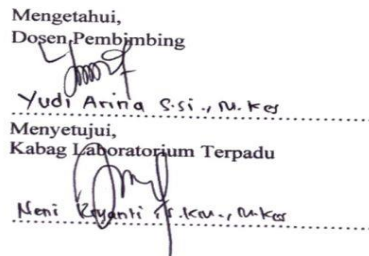 Mengetahui,
Dosen Pembimbing
Yudi Arina S.si., M.Kes
Menyetujui,
Kabag Laboratorium Terpadu
Neni Riyanti, S.KM., M.Kes